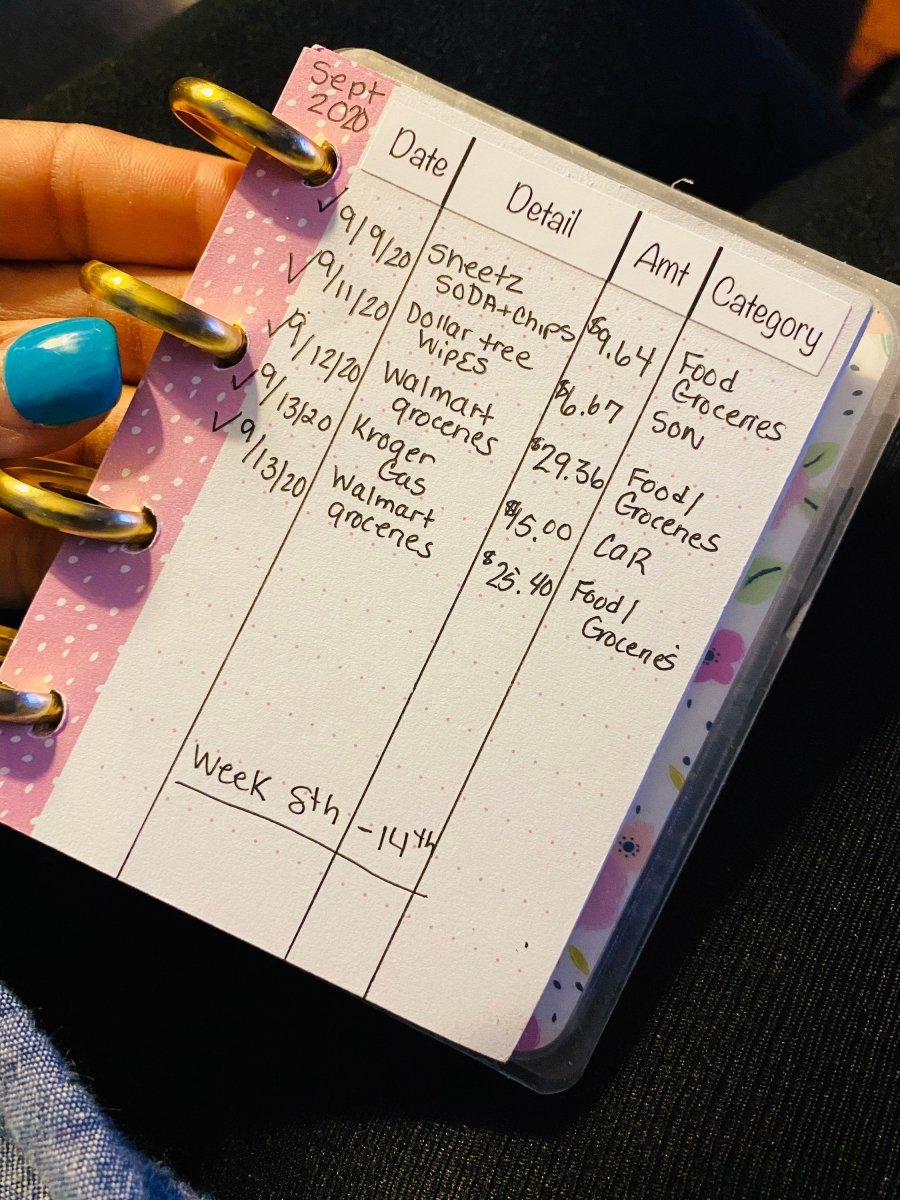 Sept
2020
Date Detail Amt Category
✓ 9/9/20 Sheetz $9.64 Food
SODA+Chips Groceries
✓ 9/11/20 Dollar tree $6.67 SON
WIPES
✓ 9/12/20 Walmart $29.36 Food/
groceries Groceries
✓ 9/13/20 Kroger $15.00 CAR
Gas
✓ 9/13/20 Walmart $25.40 Food/
groceries Groceries
Week 8th - 14th